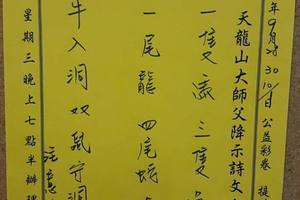 年9月28 30 10/1日 公益彩券 提
天龍山大師父降示詩文
一隻贏三隻
一尾龍 四尾蛇
牛入洞奴鼠守洞
注意
星期三晚上七點半辦理